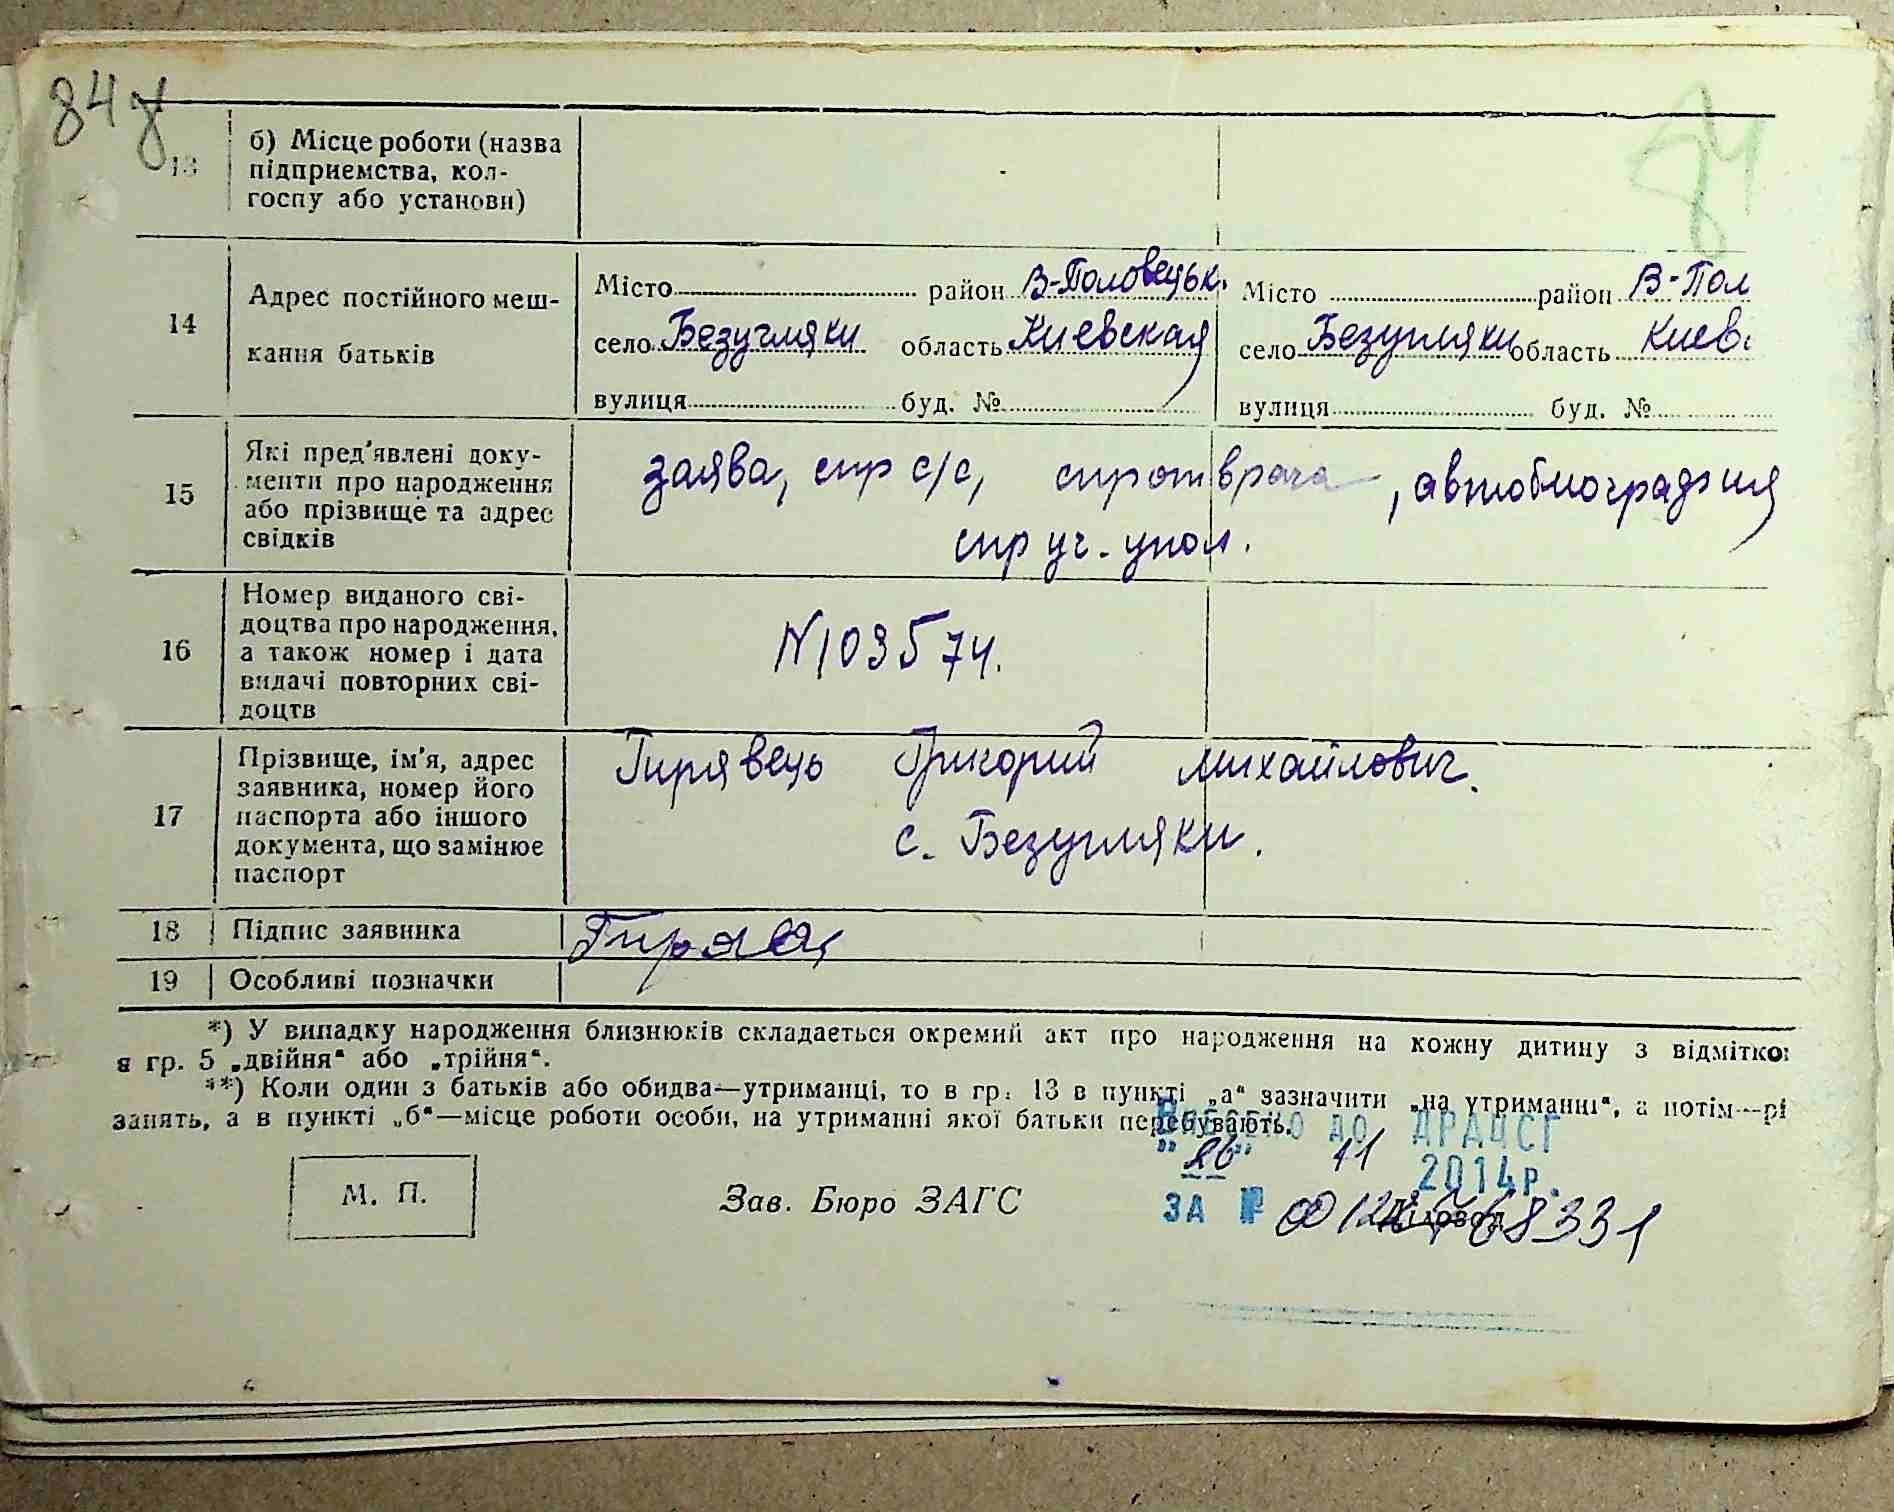 84
84
13 б) Місце роботи (назва
підприємства, кол-
госпу або установи)
14 Адрес постійного меш-
кання батьків
Місто район В-Половецьк.
село Безугляки область Киевская
вулиця буд. №
Місто район В-Пол
село Безугляки область Киев.
вулиця буд. №
15 Які пред'явлені доку-
менти про народження
або прізвище та адрес
свідків
заява, спр с/с, спр от врача, автобиография
спр уч. упол.
16 Номер виданого сві-
доцтва про народження,
а також номер і дата
видачі повторних сві-
доцтв
N103574.
17 Прізвище, ім'я, адрес
заявника, номер його
паспорта або іншого
документа, що замінює
паспорт
Гирявець Григорий Михайлович.
с. Безугляки.
18 Підпис заявника
19 Особливі позначки
*) У випадку народження близнюків складається окремий акт про народження на кожну дитину з відмітко
в гр. 5 „двійня“ або „трійня“.
**) Коли один з батьків або обидва—утриманці, то в гр. 13 в пункті „а“ зазначити „на утриманні“, а потім—рі
занять, а в пункті „б“—місце роботи особи, на утриманні якої батьки перебувають.
Внесено до ДРАЦСГ
"26" 11 2014р.
М. П. Зав. Бюро ЗАГС Діловод
ЗА №